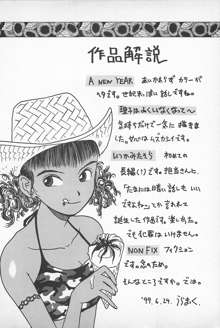 作品解説
A NEW YEAR あいかわらずカラーが
ヘタです。世紀末っぽい話しですね。
理子はよくいなくなって
気持ちだけで一気に描きま
した。ぜんぜんムズカシイです。
いつかみたそら 初めての
長編(?)です。担当さんに
「たまには暗い話しもいい
ですよねっ」かと言われて
誕生した作品です。楽しかった。
でも犯罪はいけません。
NON FIX フィクション
です。念のため。
そんなところですか。では。
'99. 6. 29.